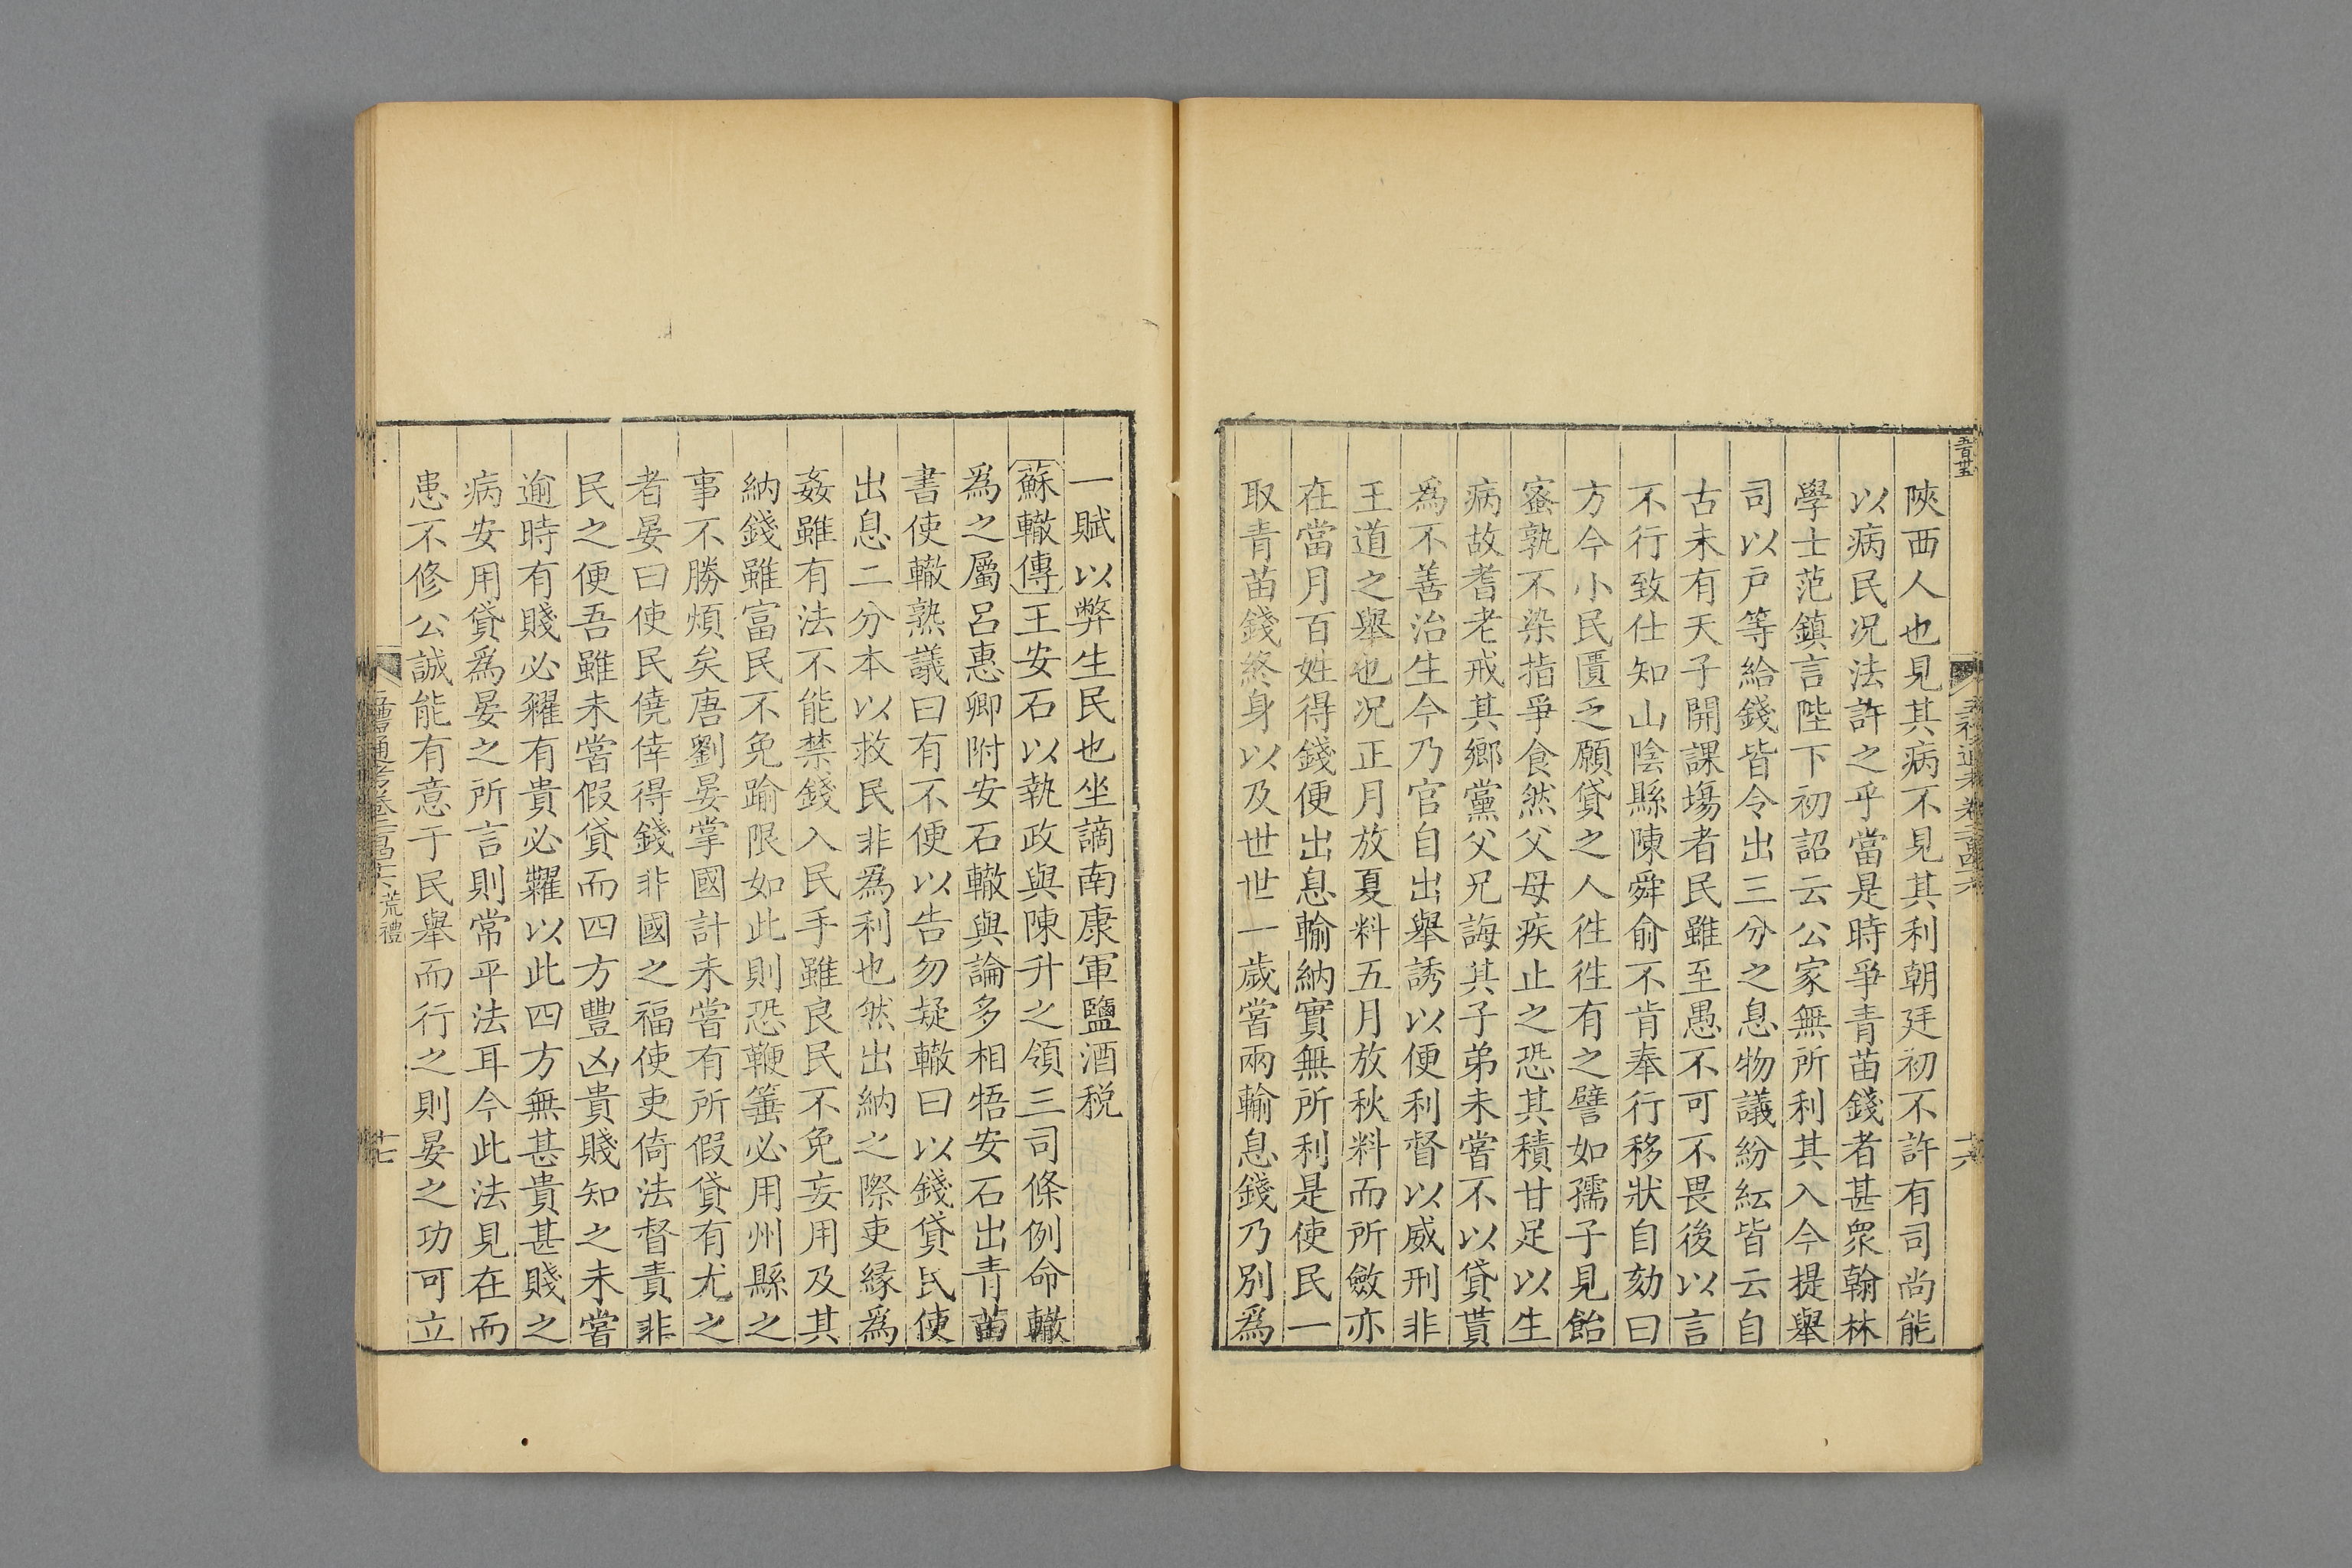 陝西人也見其病不見其利朝廷初不許有司尚能
以病民况法許之乎當是時爭青苗錢者甚衆翰林
學士范鎮言陛下初詔云公家無所利其入今提舉
司以戸等給錢皆令出三分之息物議紛紜皆云自
古未有天子開課塲者民雖至愚不可不畏後以言
不行致仕知山陰縣陳舜俞不肯奉行移狀自劾曰
方今小民匱乏願貸之人徃徃有之譬如孺子見飴
蜜孰不染指爭食然父母疾止之恐其積甘足以生
病故耆老戒其鄉黨父兄誨其子弟未嘗不以貸貰
爲不善治生今乃官自出舉誘以便利督以威刑非
王道之舉也况正月放夏料五月放秋料而所斂亦
在當月百姓得錢便出息輸納實無所利是使民一
取青苗錢終身以及世世一歲嘗兩輸息錢乃別爲
一賦以弊生民也坐謫南康軍鹽酒税
蘇轍傳王安石以執政與陳升之領三司條例命轍
爲之屬呂惠卿附安石轍與論多相牾安石出青苗
書使轍熟議曰有不便以告勿疑轍曰以錢貸民使
出息二分本以救民非爲利也然出納之際吏緣爲
姦雖有法不能禁錢入民手雖良民不免妄用及其
納錢雖富民不免踰限如此則恐鞭箠必用州縣之
事不勝煩矣唐劉晏掌國計未嘗有所假貸有尤之
者晏曰使民僥倖得錢非國之福使吏倚法督責非
民之便吾雖未嘗假貸而四方豐凶貴賤知之未嘗
逾時有賤必糴有貴必糶以此四方無甚貴甚賤之
病安用貸爲晏之所言則常平法耳今此法見在而
患不修公誠能有意于民舉而行之則晏之功可立
荒禮
十七